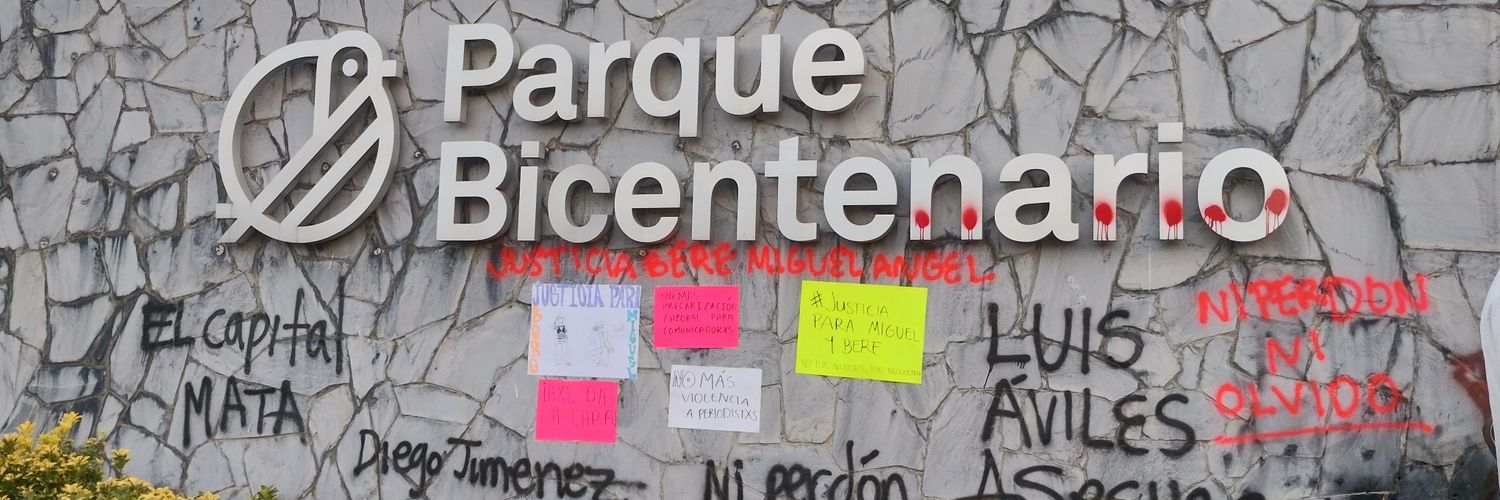 Parque
Bicentenario
JUSTICIA BERE MIGUEL ANGEL
EL capital
MATA
JUSTICIA PARA
BERE
MIGUEL
NO MÁS
PRECARIZACIÓN
LABORAL PARA
COMUNICADORXS
#JUSTICIA
PARA MIGUEL
Y BERE
NO FUE ACCIDENTE, FUE NEGLIGENCIA
AXE DA
LA CARA
NO MÁS
VIOLENCIA
A PERIODISTXS
LUIS
ÁVILES
NI PERDON
NI
OLVIDO
Diego Jimenez
Ni perdón